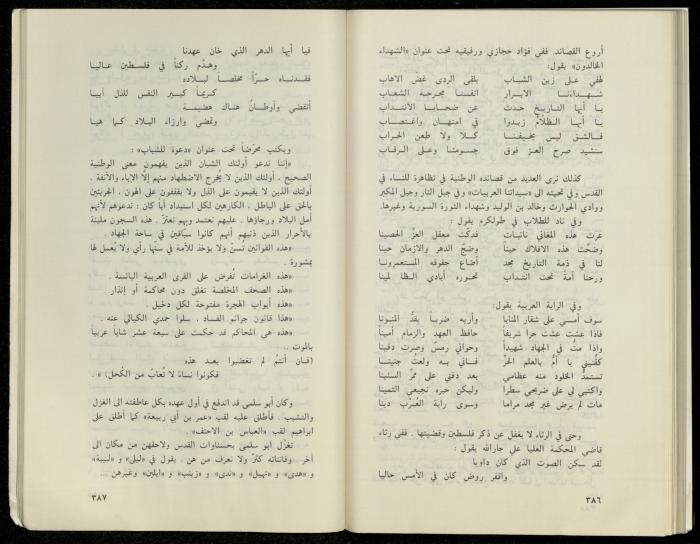 أروع القصائد. ففي فؤاد حجازي ورفيقيه تحت عنوان «الشهداء
الخالدون» يقول:
لهفي على زين الشباب يلقى الردي غضّ الاهاب
شهداءنا الابرار انفسنا مجرحة الشعاب
يا أيها التاريخ حدث عن ضحايا الانتداب
يا أيها الظلاّم زيدوا في امتهان واغتصاب
فالشنق ليس يخيفنا كلا ولا طعن الحراب
سنشيد صرح العز فوق جسومنا وعلى الرقاب
كذلك نرى العديد من قصائده الوطنية في تظاهرة للنساء في
القدس وفي تحيته الى «سيداتنا العربيات» وفي جبل النار وجبل المكبر
ووادي الحوارث وخالد بن الوليد وشهداء الثورة السورية وغيرها.
وفي ناد للطلاب في طولكرم يقول:
عرت هذه المغاني نائبات فدكّت معقل العزّ الحصينا
وضحّت هذه الافلاك حيناً وضجّ الدهر والازمان حينا
لنا في ذمة التاريخ مجد أضاع حقوقه المستعمرونا
ورحنا أمة تحت انتداب تخوره أيادي الظالمينا
وفي الراية العربية يقول:
سوف أمسي على شفار المنايا وأريه ضرباً يقدّ المنونا
فاذا عشت عشت حرا شريفا حافظ العهد والزمام أمينا
واذا متّ في الجهاد شهيداً وحواني رمس وصرت دفينا
كفّنيني يا أمّ بالعلم الحرّ فاني به ولعت جنينا
تستمدّ الخلود منه عظامي بعد دفني على ممرّ السنينا
واكتبي لي على ضريحي سطرا وليكن حبره نجيعي الثمينا
مات لم يرض غير مجد مراما وسوى راية العُرب دينا
وحتى في الرثاء لا يغفل عن ذكر فلسطين وقضيتها. ففي رثاء
قاضي المحكمة العليا علي جارالله يقول:
لقد سكن الصوت الذي كان داويا
واقفر روض كان في الأمس حاليا
٣٨٦
فيا أيها الدهر الذي خان عهدنا
وهدّم ركناً في فلسطين عاليا
فقدناه حرّاً مخلصاً لبلاده
كريماً كبير النفس للذل آبيا
أتقضي وأوطانٌ هناك هضيمة
وتمضي وارزاء البلاد كما هيا
ويكتب محرّضاً تحت عنوان «دعوة للشباب»:
«إننا ندعو أولئك الشبان الذين يفهمون معنى الوطنية
الصحيح. أولئك الذين لا يخرج الاضطهاد منهم إلّا الإباء والأنفة.
أولئك الذين لا يقيمون على الذل ولا يقفون على الهون. الجريئين
بالحق على الباطل، الكارهين لكل استبداد أياً كان: ندعوهم لأنهم
أمل البلاد ورجاؤها. عليهم نعتمد وبهم نعتزّ. هذه السجون مليئة
بالأحرار الذين ذنبهم أنهم كانوا سبّاقين في ساحة الجهاد.
«هذه القوانين تسنّ ولا يؤخذ للأمة في سنّها رأي ولا يُعمل لها
بمشورة.
«هذه الغرامات تُفرض على القرى العربية البائسة.
«هذه الصحف المخلصة تغلق دون محاكمة أو إنذار.
«هذه أبواب الهجرة مفتوحة لكل دخيل.
«هذا قانون جرائم الفساد، سلوا حمدي الكيالي عنه.
«هذه هي المحاكم قد حكمت على سبعة عشر شاباً عربياً
بالموت..
(فان أنتم لم تغضبوا بعد هذه
فكونوا نساءً لا تُعابُ من الكُحل)».
وكان أبو سلمى قد اندفع في أول عهده بكل عاطفته الى الغزل
والتشبب. فأطلق عليه لقب «عمر بن أبي ربيعة» كما أطلق على
ابراهيم لقب «العباس بن الاحنف».
تغزّل ابو سلمى بحسناوات القدس ولاحقهن من مكان الى
آخر. وفاتناته كثرٌ ولا نعرف من هن. يقول في «ليلى» و «لبيبة»
و «هدى» و «نهيل» و «ندى» و «زينب» و «ايلين» وغيرهن...
٣٨٧